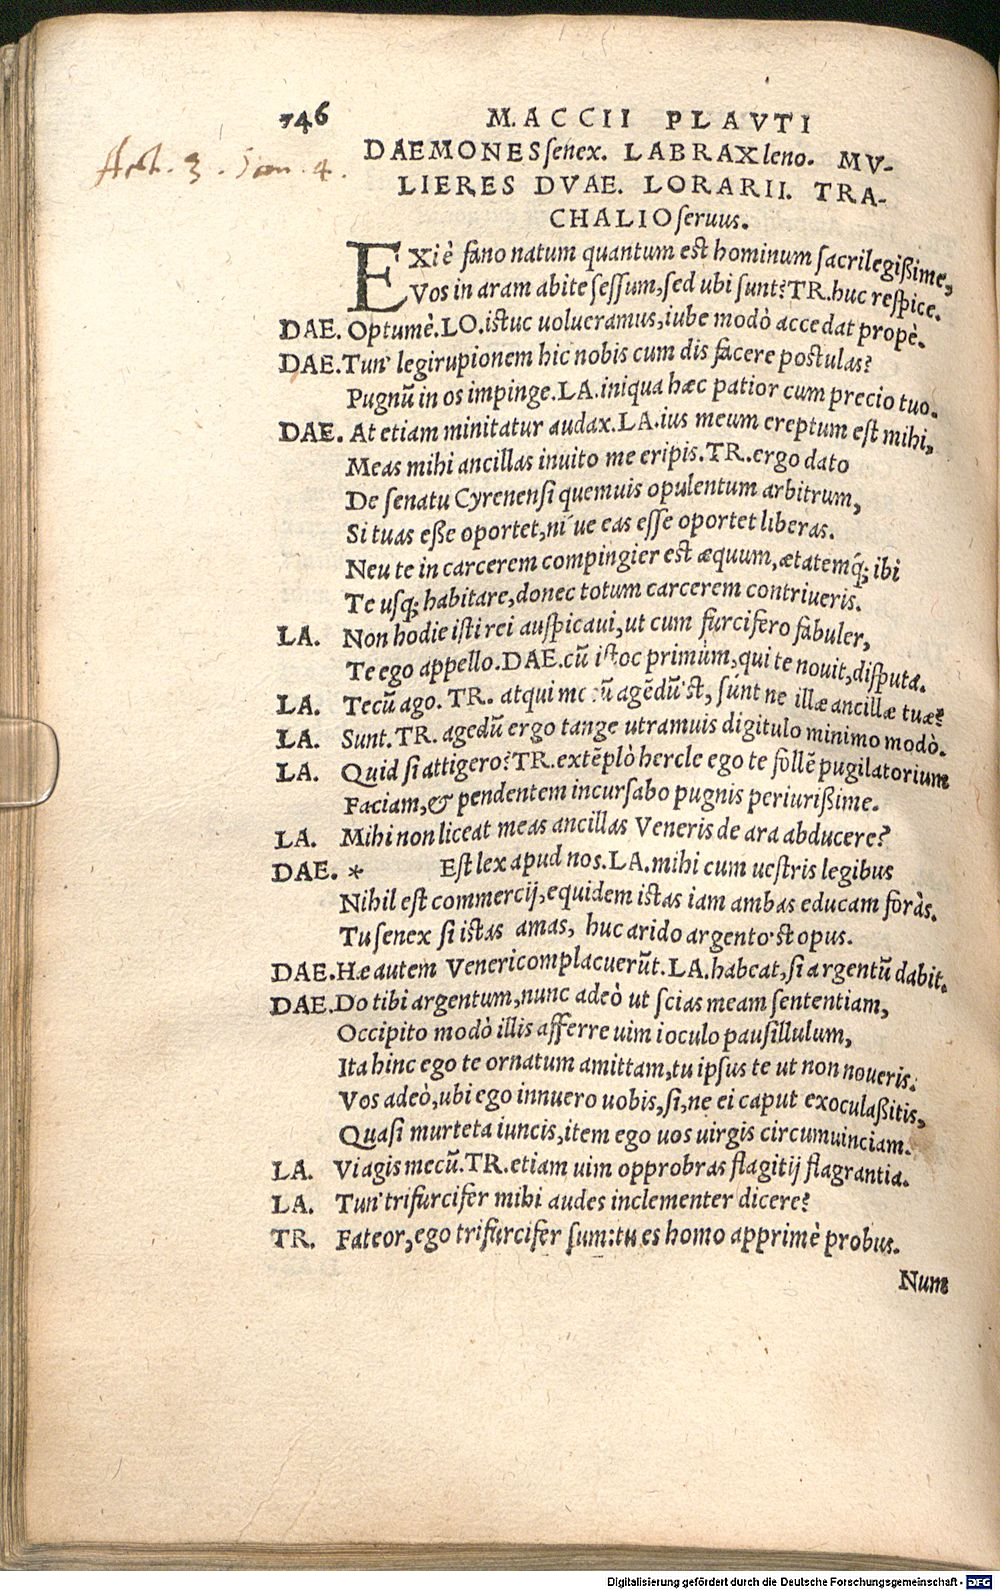 746
M. ACCII PLAVTI
Act. 3. Scen. 4.
DAEMONES senex. LABRAX leno. MV-
LIERES DVAE. LORARII. TRA-
CHALIO seruus.
EXi è fano natum quantum est hominum sacrilegißime,
Vos in aram abite sessum, sed ubi sunt? TR. huc respice.
DAE. Optumè. LO. istuc uolueramus, iube modò accedat propè.
DAE. Tun' legirupionem hic nobis cum dis facere postulas?
Pugnũ in os impinge. LA. iniqua hæc patior cum precio tuo.
DAE. At etiam minitatur audax. LA. ius meum ereptum est mihi,
Meas mihi ancillas inuito me eripis. TR. ergo dato
De senatu Cyrenensi quemuis opulentum arbitrum,
Si tuas eße oportet, ni'ue eas esse oportet liberas.
Neu te in carcerem compingier est æquum, ætatemq́; ibi
Te usq; habitare, donec totum carcerem contriueris.
LA. Non hodie isti rei auspicaui, ut cum furcifero fabuler,
Te ego appello. DAE. cũ istoc primùm, qui te nouit, disputa.
LA. Tecũ ago. TR. atqui mecũ agẽdũ'st, sùnt ne illæ ancillæ tuæ?
LA. Sunt. TR. agedũ ergo tange utramuis digitulo minimo modò.
LA. Quid si attigero? TR. extẽplò hercle ego te follẽ pugilatorium
Faciam, & pendentem incursabo pugnis periurißime.
LA. Mihi non liceat meas ancillas Veneris de ara abducere?
DAE. * Est lex apud nos. LA. mihi cum uestris legibus
Nihil est commercij, equidem istas iam ambas educam foràs.
Tu senex si istas amas, huc arido argento'st opus.
DAE. Hæ autem Veneri complacuerũt. LA. habeat, si argentũ dabit.
DAE. Do tibi argentum, nunc adeò ut scias meam sententiam,
Occipito modò illis afferre uim ioculo pausillulum,
Ita hinc ego te ornatum amittam, tu ipsus te ut non noueris.
Vos adeò, ubi ego innuero uobis, si, ne ei caput exoculaßitis,
Quasi murteta iuncis, item ego uos uirgis circumuinciam.
LA. Vi agis mecũ. TR. etiam uim opprobras flagitij flagrantia.
LA. Tun' trifurcifer mihi audes inclementer dicere?
TR. Fateor, ego trifurcifer sum: tu es homo apprimè probus.
Num
Digitalisierung gefördert durch die Deutsche Forschungsgemeinschaft - DFG